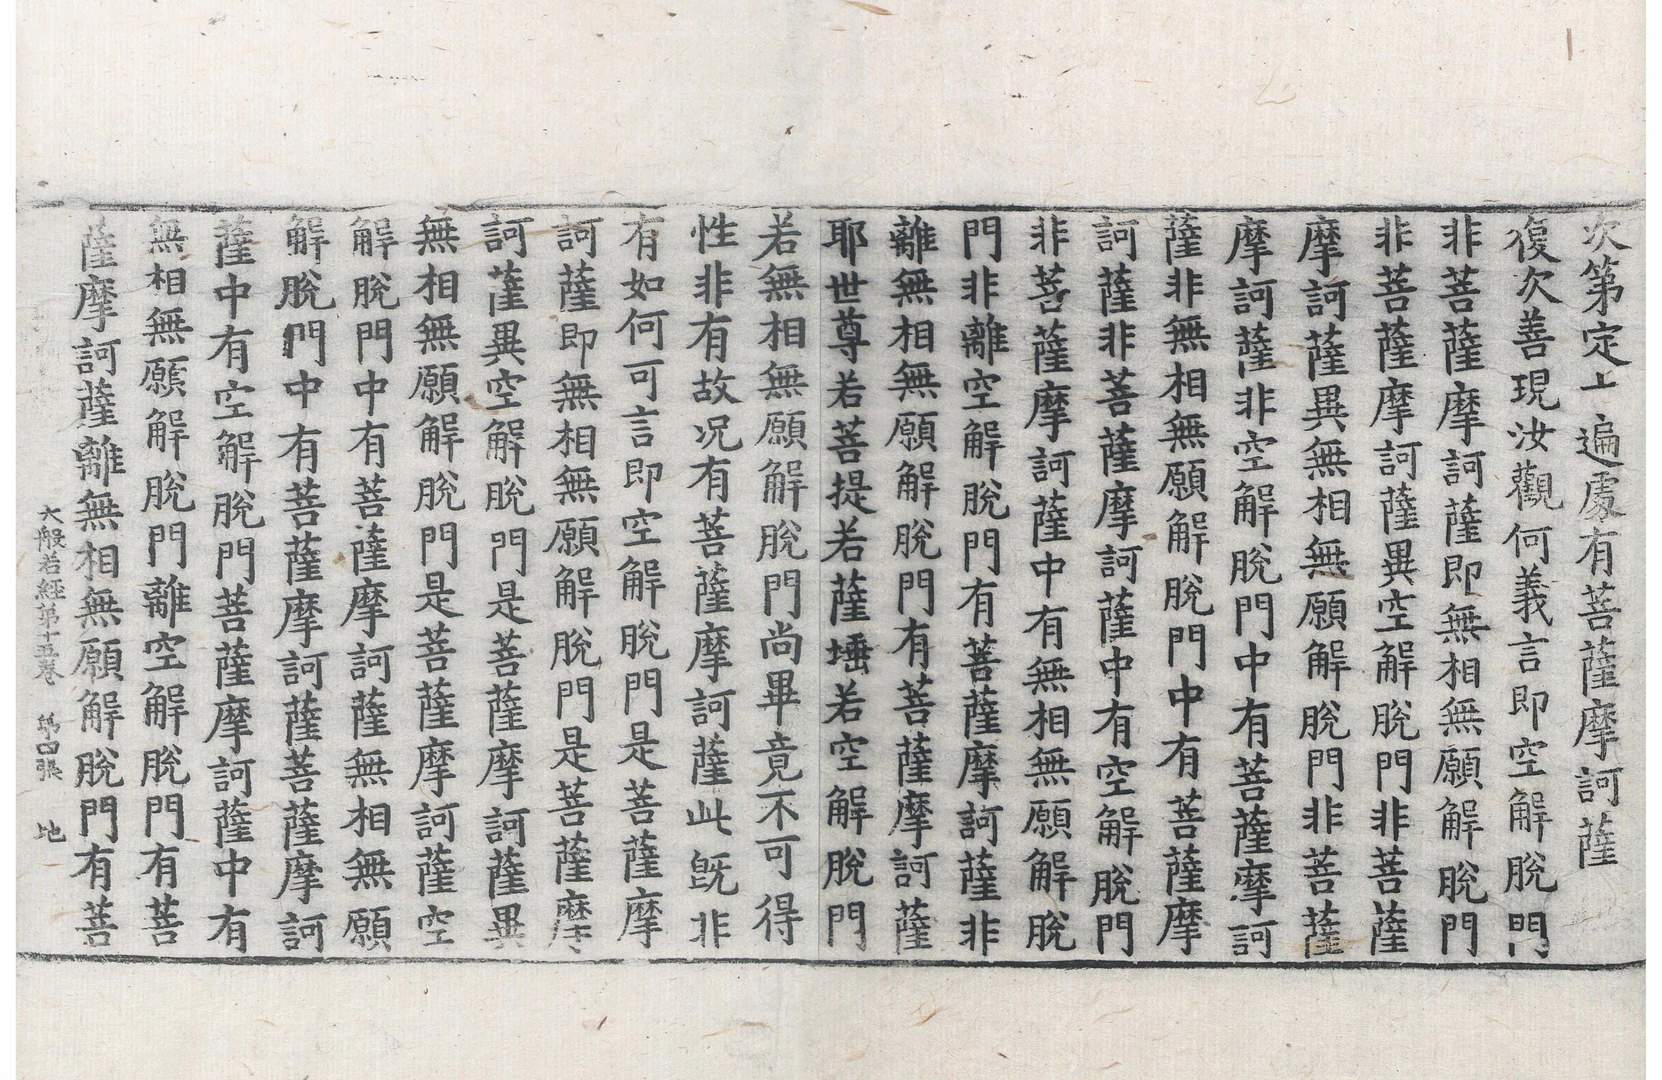 次第定十遍處有菩薩摩訶薩
復次善現汝觀何義言即空解脫門
非菩薩摩訶薩即無相無願解脫門
非菩薩摩訶薩異空解脫門非菩薩
摩訶薩異無相無願解脫門非菩薩
摩訶薩非空解脫門中有菩薩摩訶
薩非無相無願解脫門中有菩薩摩
訶薩非菩薩摩訶薩中有空解脫門
非菩薩摩訶薩中有無相無願解脫
門非離空解脫門有菩薩摩訶薩非
離無相無願解脫門有菩薩摩訶薩
耶世尊若菩提若薩埵若空解脫門
若無相無願解脫門尚畢竟不可得
性非有故况有菩薩摩訶薩此旣非
有如何可言即空解脫門是菩薩摩
訶薩即無相無願解脫門是菩薩摩
訶薩異空解脫門是菩薩摩訶薩異
無相無願解脫門是菩薩摩訶薩空
解脫門中有菩薩摩訶薩無相無願
解脫門中有菩薩摩訶薩菩薩摩訶
薩中有空解脫門菩薩摩訶薩中有
無相無願解脫門離空解脫門有菩
薩摩訶薩離無相無願解脫門有菩
大般若經第十五卷 第四張 地